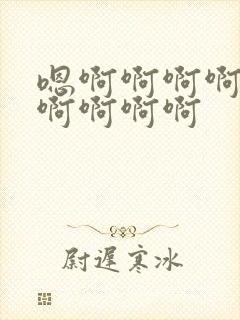 嗯啊啊啊啊
啊啊啊啊
尉迟寒冰